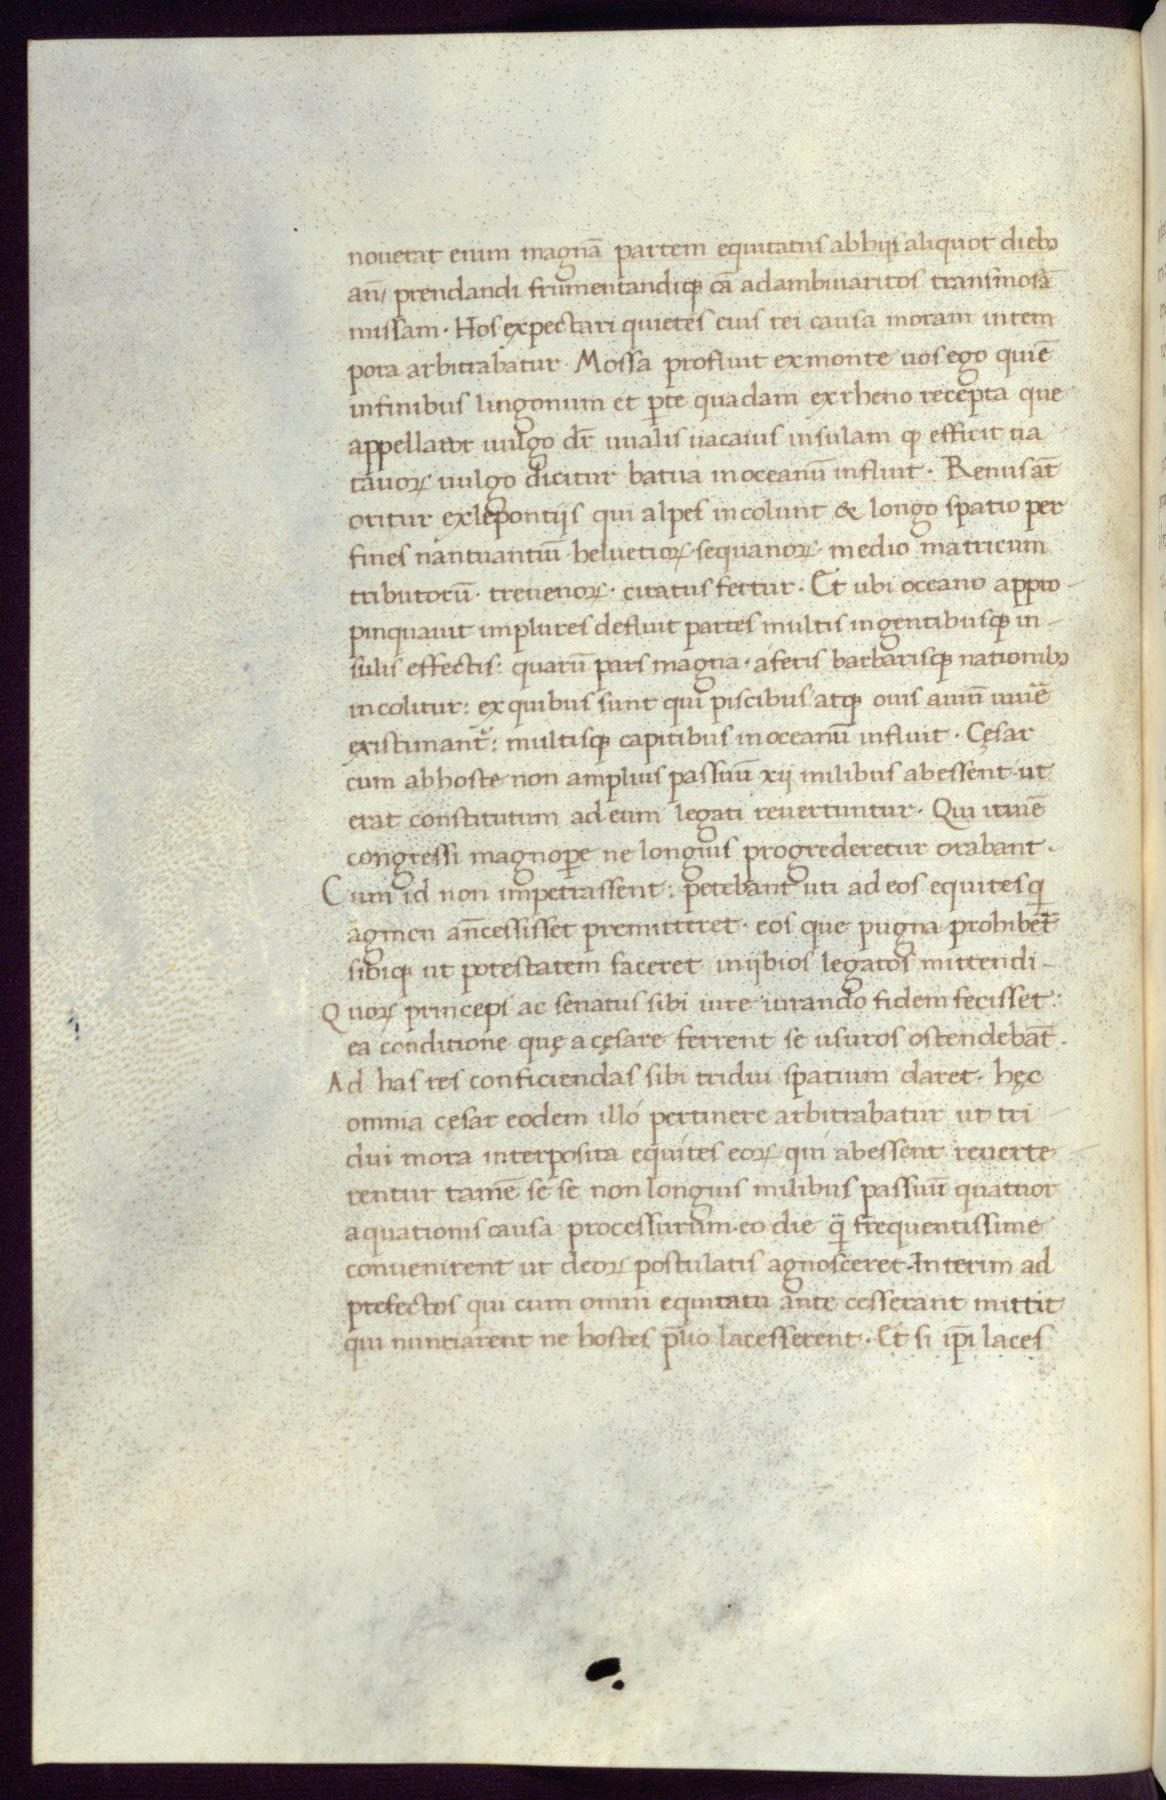 nouerat enim magnā partem equitatus ab hijs aliquot dieb;
an̄/ prendandi frumentandiq; cā ad ambiuaritos transmosā
missam · Hos expectari quietes eius rei causa moram intem
pora arbitrabatur · Mossa profluit ex monte uosego qui ē
in finibus lingonum et ꝑte quadam ex rheno recepta que
appellatur uulgo dr̄ uualis uacaius insulam q; efficit ua
tauoꝝ uulgo dicitur batua in oceanū influit · Renus at̄
oritur ex lepontijs qui alpes incolunt & longo spatio per
fines nantuantiū · heluetioꝝ · sequanoꝝ · medio matricum
tributorū · treuenoꝝ · citatus fertur · Et ubi oceano appro-
pinquauit in plures defluit partes multis ingentibusq; in-
sulis effectis : quarū pars magna · a feris barbarisq; nationib;
incolitur : ex quibus sunt qui piscibus atq; ouis auiū uiuē
existimant᷑ : multisq; capitibus in oceanū influit · Cęsar
cum ab hoste non amplius passuū xij milibus abessent · ut
erat constitutum ad eum legati reuertuntur · Qui itinē
congressi magnoꝑe ne longius progrederetur orabant ·
Cum id non impetrassent : petebant uti ad eos equites q̄
agmen an̄cessisset premitteret · eos que pugna prohibet̄
sibiq; ut potestatem faceret in ijbios legatos mittendi -
Quoꝝ princeps ac senatus sibi iure iurando fidem fecisset :
ea conditione quę a cęsare ferrent se usuros ostendebat̄ ·
Ad has res conficiendas sibi tridui spatium daret · hęc
omnia cęsar eodem illo pertinere arbitrabatur ut tri
dui mora interposita equites eoꝝ qui abessent reuerte-
rentur tamē se se non longius milibus passuū quatuor
aquationis causa processurum · eo die q̄ frequentissime
conuenirent ut de eoꝝ postulatis agnosceret · Interim ad
prefectos qui cum omni equitatu ante cesserant mittit
qui nuntiarent ne hostes p̄lio lacesserent · Et si ip̄i laces